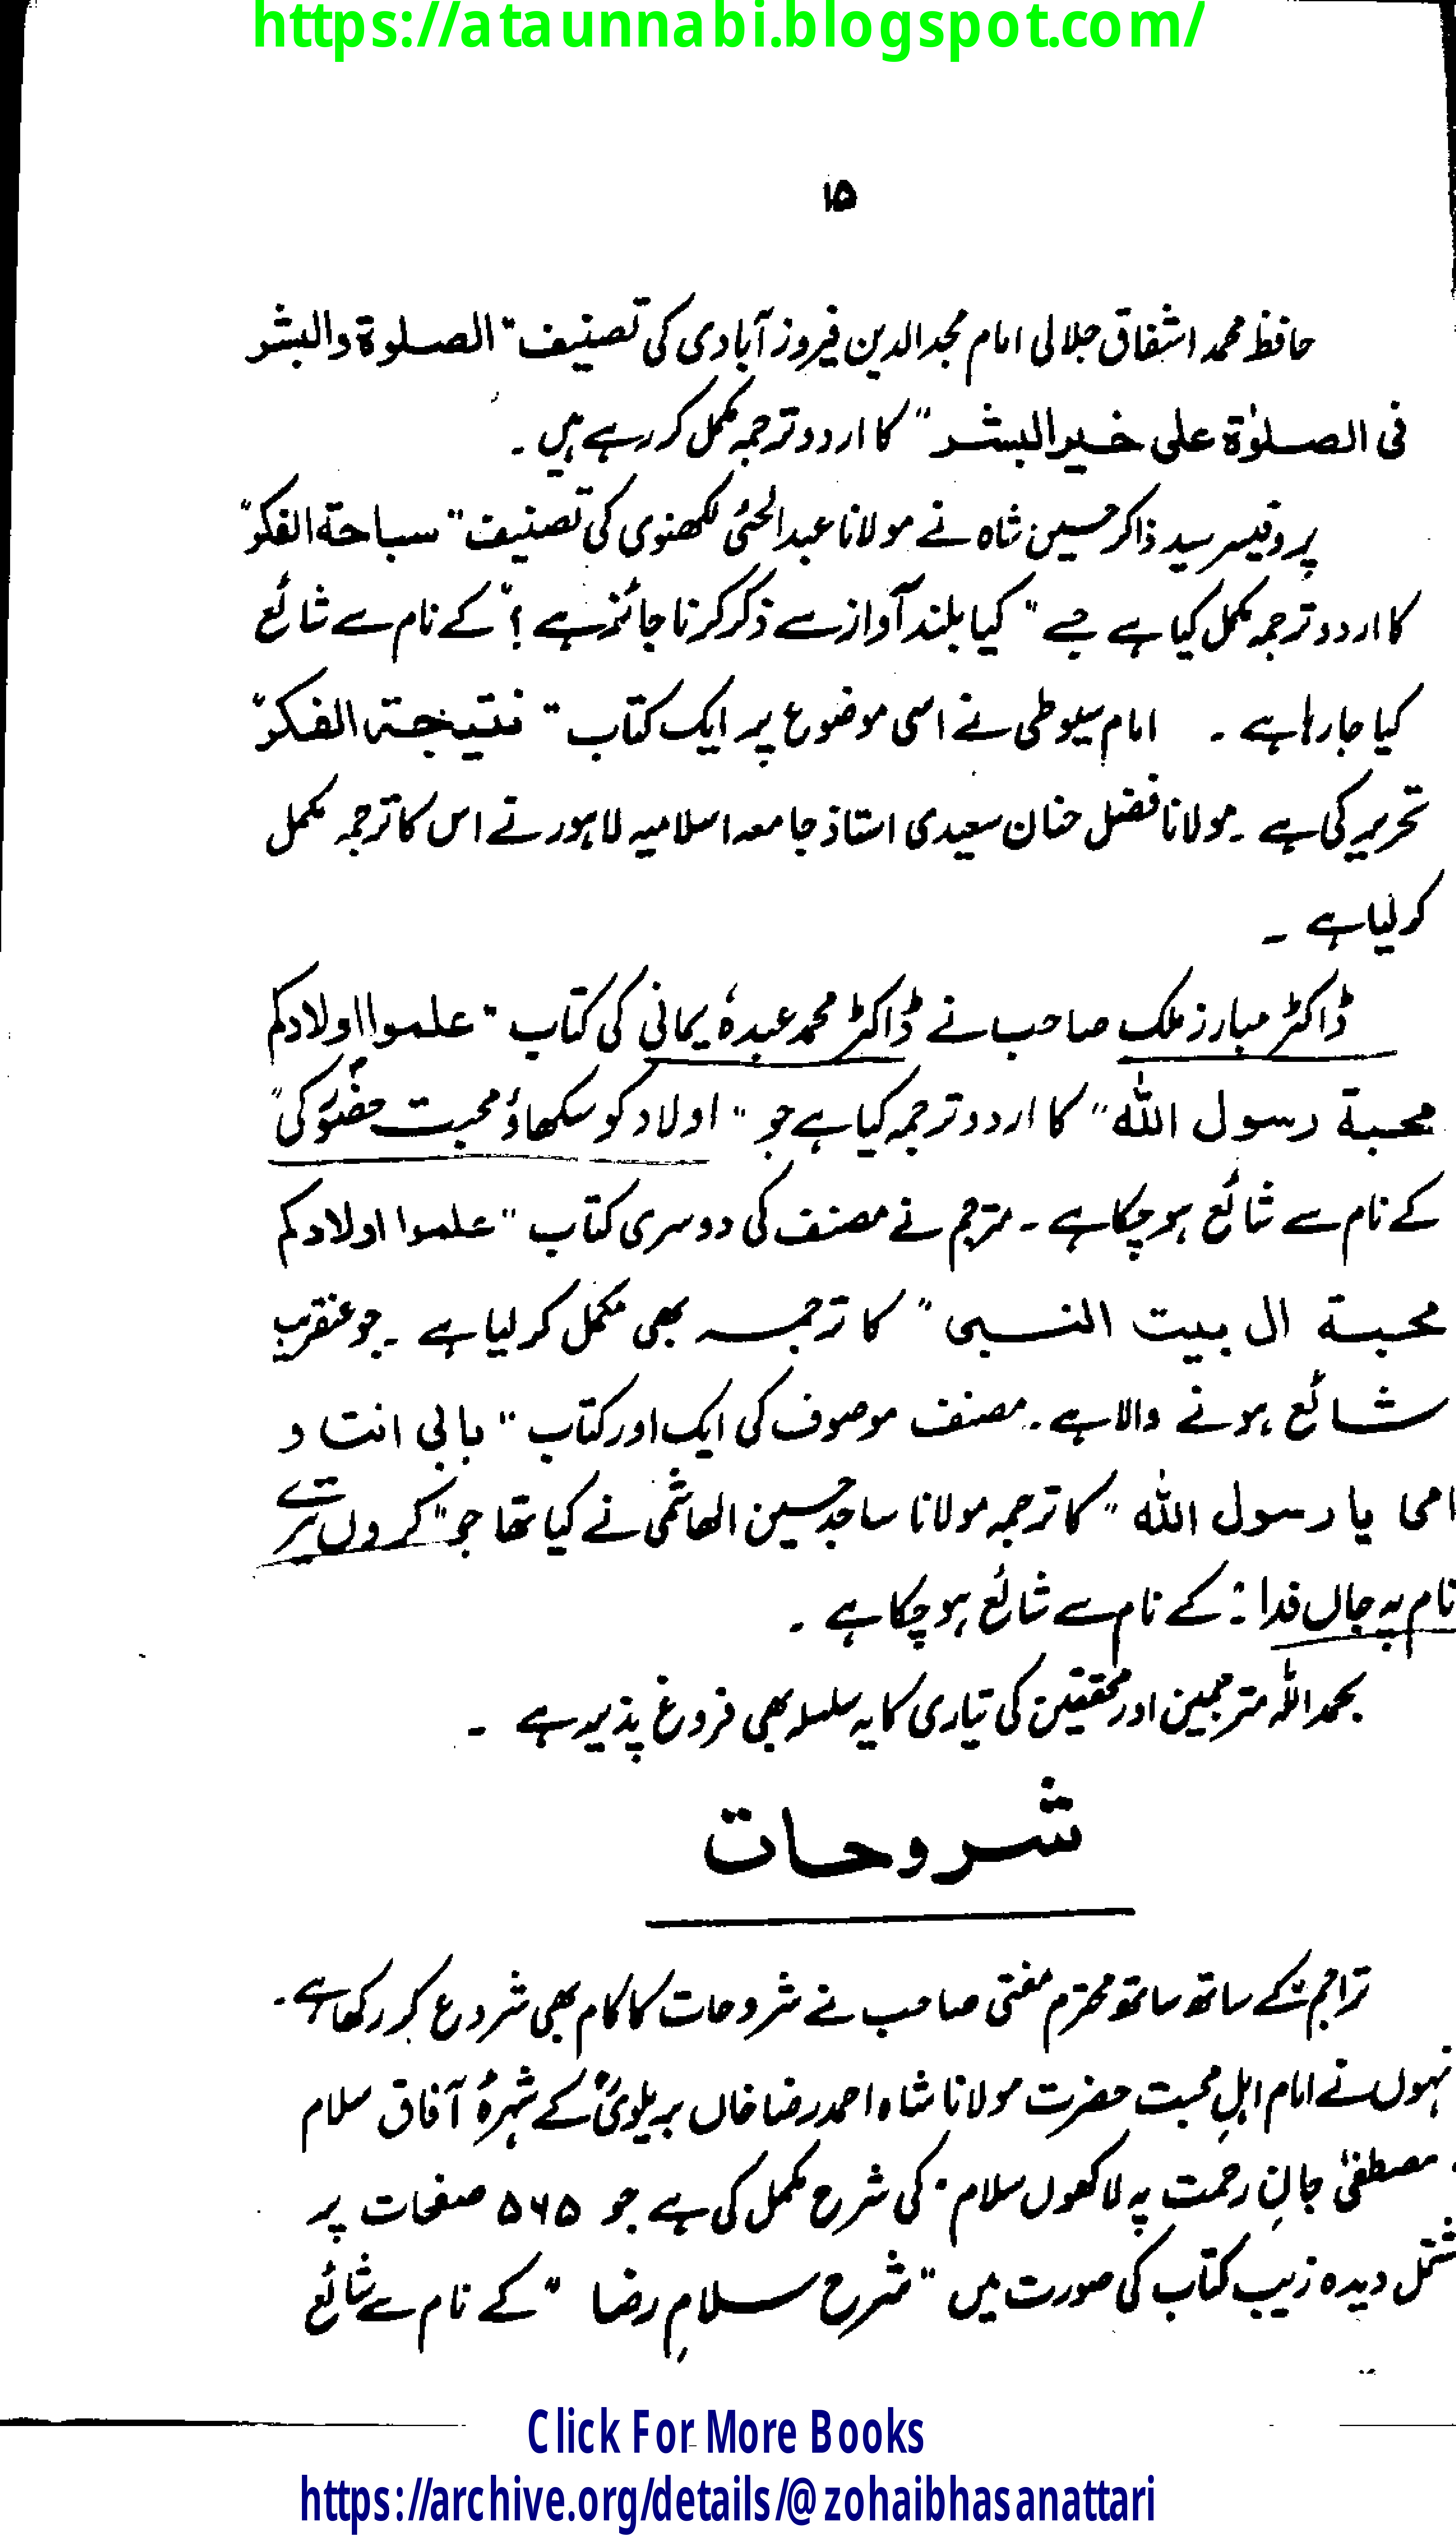 https://ataunnabi.blogspot.com/
۱۵
حافظ محمد اشفاق جلالی امام مجدالدین فیروز آبادی کی تصنیف "الصلوة والبشر
فی الصلوٰة علی خیر البشر" کا اردو ترجمہ مکمل کر رہے ہیں ۔
پروفیسر سید ذاکر حسین شاہ نے مولانا عبدالحئی لکھنوی کی تصنیف "سباحة الفکر"
کا اردو ترجمہ مکمل کیا ہے جسے "کیا بلند آواز سے ذکر کرنا جائز ہے؟" کے نام سے شائع
کیا جا رہا ہے ۔ امام سیوطی نے اسی موضوع پر ایک کتاب "نتیجۃ الفکر"
تحریر کی ہے ۔ مولانا فضل حنان سعیدی استاذ جامعہ اسلامیہ لاہور نے اس کا ترجمہ مکمل
کر لیا ہے ۔
ڈاکٹر مبارز ملک صاحب نے ڈاکٹر محمد عبدہٗ یمانی کی کتاب "علموا اولادکم
محبة رسول الله" کا اردو ترجمہ کیا ہے جو "اولاد کو سکھاؤ محبت حضورؐ کی"
کے نام سے شائع ہو چکا ہے ۔ مترجم نے مصنف کی دوسری کتاب "علموا اولادکم
محبة ال بیت النبی" کا ترجمہ بھی مکمل کر لیا ہے ۔ جو عنقریب
شائع ہونے والا ہے ۔ مصنف موصوف کی ایک اور کتاب "بابی انت و
امی یا رسول الله" کا ترجمہ مولانا ساجد حسین الہاشمی نے کیا تھا جو "کروں تیرے
نام پہ جاں فدا" کے نام سے شائع ہو چکا ہے ۔
بحمد اللہ مترجمین اور محققین کی تیاری کا یہ سلسلہ بھی فروغ پذیر ہے ۔
شروحات
تراجم کے ساتھ ساتھ محترم مفتی صاحب نے شروحات کا کام بھی شروع کر رکھا ہے ۔
نہوں نے امام اہلِ محبت حضرت مولانا شاہ احمد رضا خاں بریلویؒ کے شہرۂ آفاق سلام
مصطفیٰ جانِ رحمت پہ لاکھوں سلام" کی شرح مکمل کی ہے جو ۵۶۵ صفحات پر
شتمل دیدہ زیب کتاب کی صورت میں "شرح سلامِ رضا" کے نام سے شائع
Click For More Books
https://archive.org/details/@zohaibhasanattari